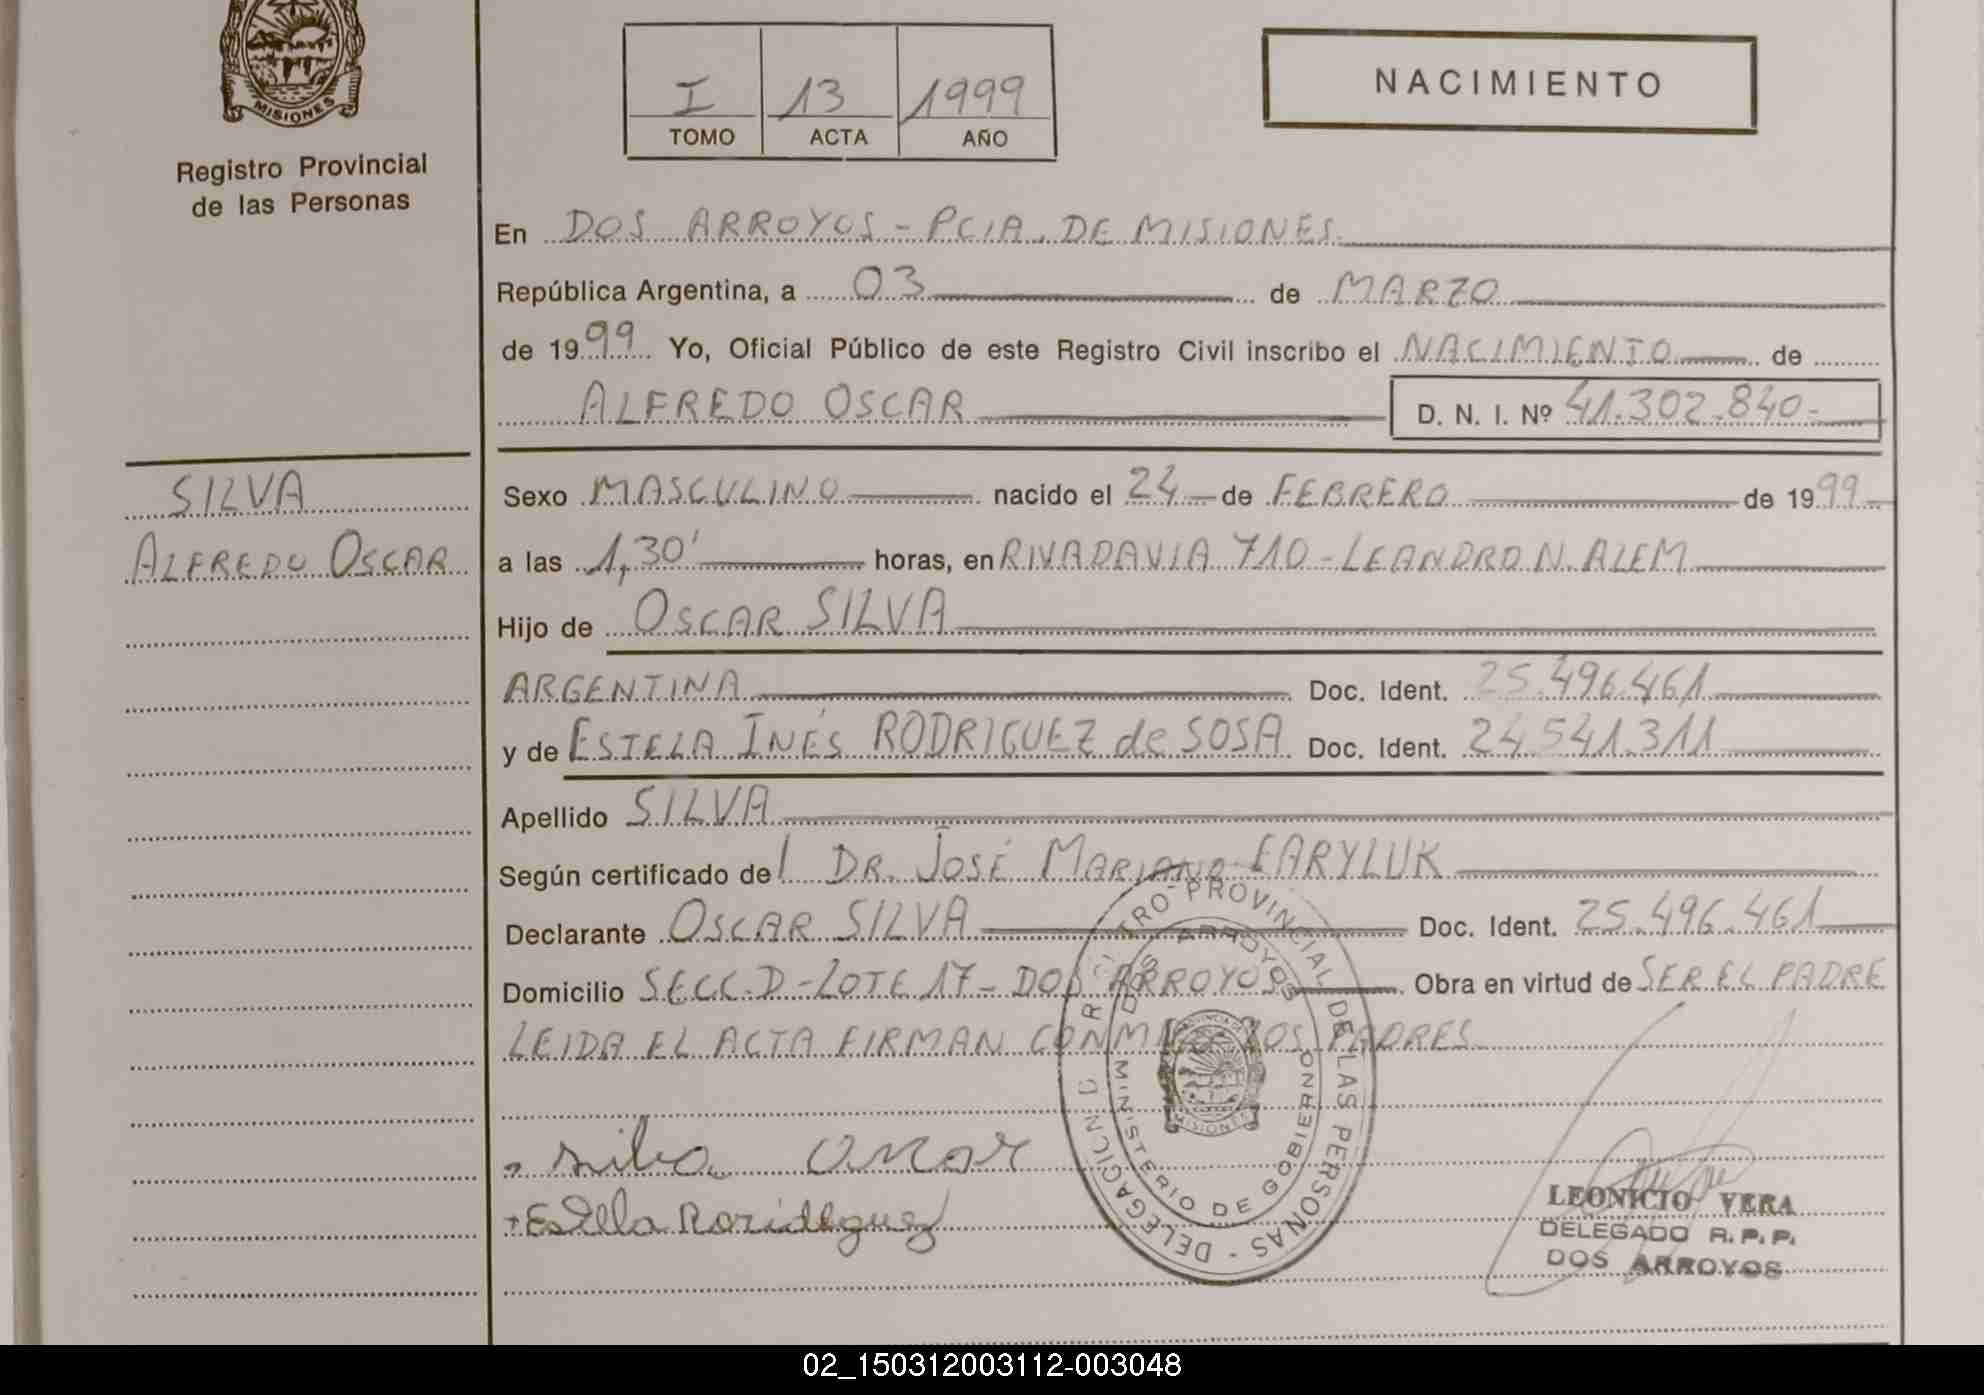 MISIONES
Registro Provincial
de las Personas
I 13 1999
TOMO ACTA AÑO
NACIMIENTO
En DOS ARROYOS - PCIA. DE MISIONES.
República Argentina, a 03 de MARZO
de 1999 Yo, Oficial Público de este Registro Civil inscribo el NACIMIENTO de
ALFREDO OSCAR D. N. I. Nº 41.302.840.-
SILVA
ALFREDO OSCAR
Sexo MASCULINO nacido el 24 de FEBRERO de 1999
a las 1,30' horas, en RIVADAVIA 710 - LEANDRO N. ALEM
Hijo de OSCAR SILVA
ARGENTINA Doc. Ident. 25.496.461
y de ESTELA INÉS RODRIGUEZ de SOSA Doc. Ident. 24.541.311
Apellido SILVA
Según certificado de l DR. JOSÉ MARIANO
Declarante OSCAR SILVA Doc. Ident. 25.496.461
Domicilio SECC. D - LOTE 17 - DOS ARROYOS Obra en virtud de SER EL PADRE
LEIDA EL ACTA FIRMAN CONMIGO LOS PADRES.
REGISTRO PROVINCIAL DE LAS PERSONAS - DELEGACION
DOS ARROYOS
MINISTERIO DE GOBIERNO
MISIONES
silva oscar
Estella
LEONICIO VERA
DELEGADO R. P. P.
DOS ARROYOS
02_150312003112-003048